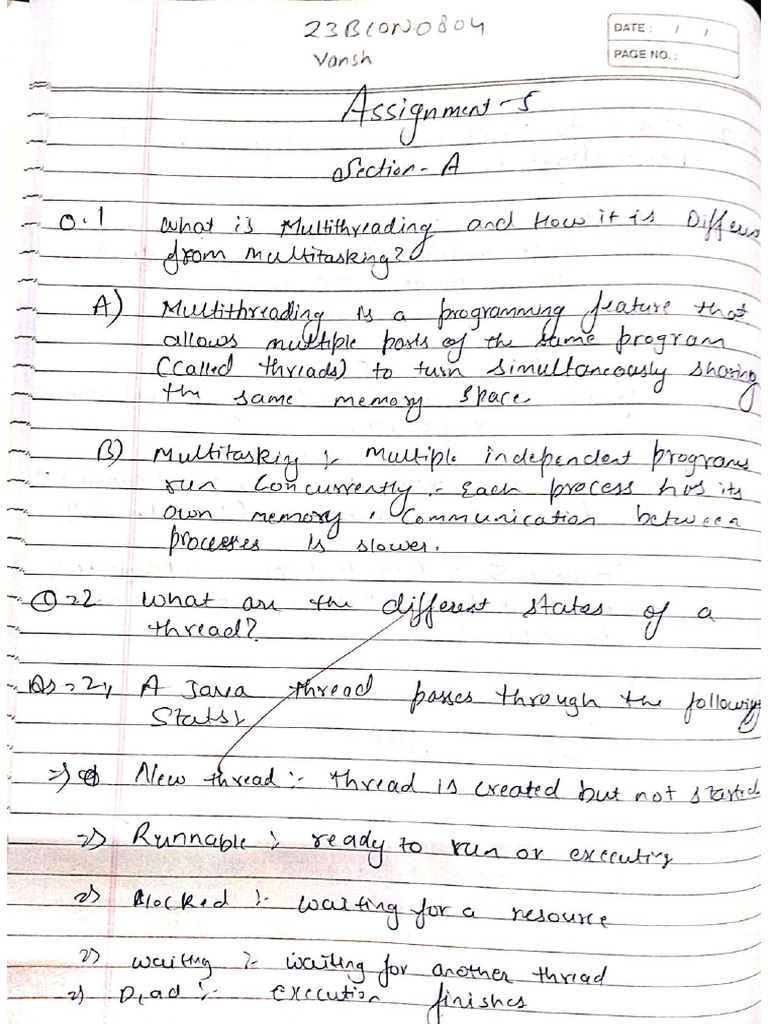 23BCON0804
DATE: / /
Vansh
PAGE NO.:
Assignment-5
Section-A
Q.1 What is Multithreading and How it is Differen
from multitasking?
A) Multithreading is a programming feature that
allows multiple parts of the same program
(called threads) to turn simultaneously sharing
the same memory space.
B) Multitasking :- Multiple independent programs
run concurrently. Each process has its
own memory. Communication between
processes is slower.
Q=2 What are the different states of a
thread?
As=2, A Java thread passes through the following
States:
=> New thread :- thread is created but not started
=> Runnable :- ready to run or executing
=> Blocked :- waiting for a resource
=> waiting :- waiting for another thread
=> Dead :- Execution finishes